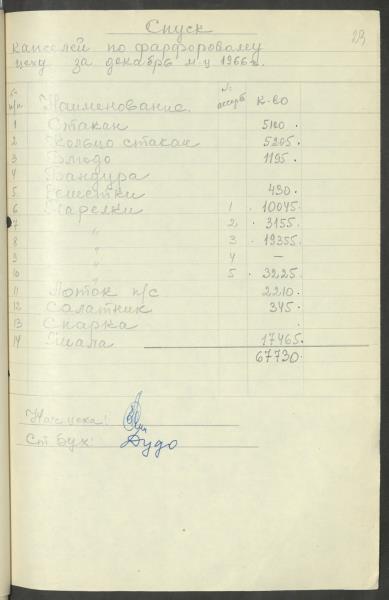 Спуск
29
капселей по фарфоровому
цеху за декабрь м-ц 1966 г.
№ п/п Наименование № ассорт к-во
1 Стакан 5100
2 Кольцо стакан 5205
3 Блюдо 1195
4 Бандура
5 Решетки 430
6 Тарелки 1 10045
7 " 2 3155
8 " 3 19355
9 " 4 —
10 " 5 3225
11 Лоток п/с 2210
12 Салатник 345
13 Спарка
14 Шала 17465
67730
Нач цеха:
Ст бух: Дудо